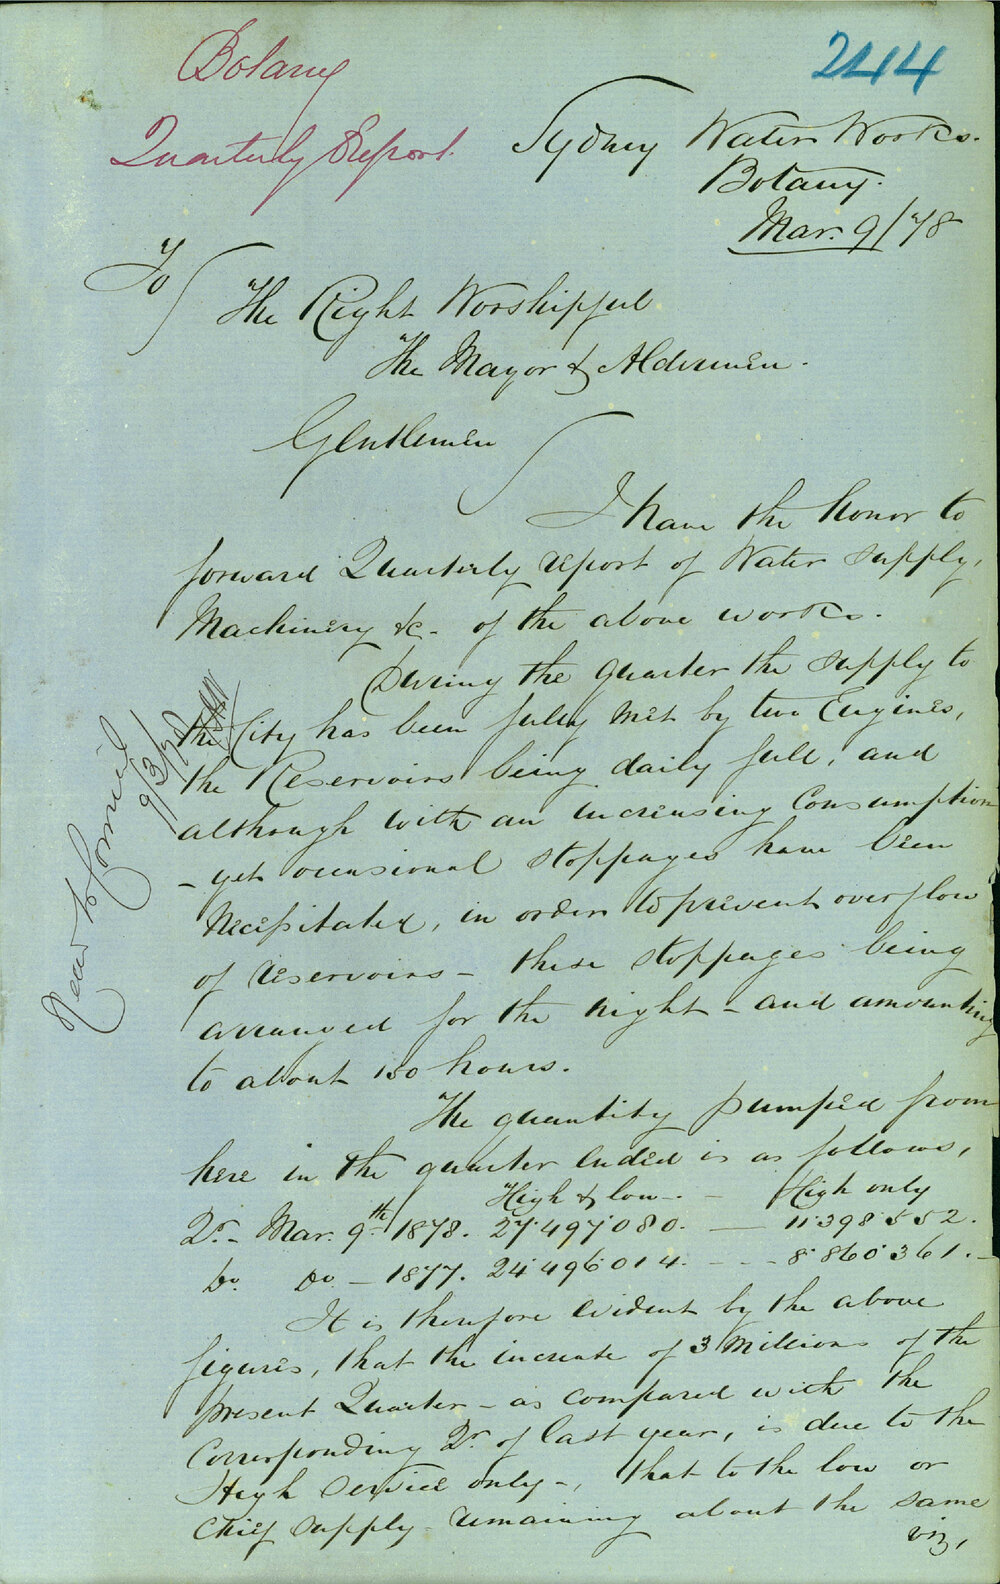 Botany
Quarterly Report.
244
Sydney Water Works.
Botany.
Mar. 9/78
To
The Right Worshipful
The Mayor & Aldermen.
Gentlemen
I have the honor to
forward Quarterly report of Water supply,
Machinery &c. of the above works.
During the quarter the supply to
the City has been fully met by two Engines,
the Reservoirs being daily full, and
although with an increasing Consumption
- yet occasional stoppages have been
necessitated, in order to prevent overflow
of reservoirs - these stoppages being
arranged for the night - and amounting
to about 150 hours.
The quantity pumped from
here in the quarter ended is as follows,
High & low - High only
Qr. Mar. 9th 1878. 27.497.080. — 11.398.552.
Do. Do - 1877. 24.496.014. - - - 8.860.361. -
It is therefore evident by the above
figures, that the increase of 3 Millions of the
present Quarter - as compared with the
Corresponding Qr. of last year, is due to the
High service only -, that to the low or
Chief supply remaining about the same
viz,
9/3/78